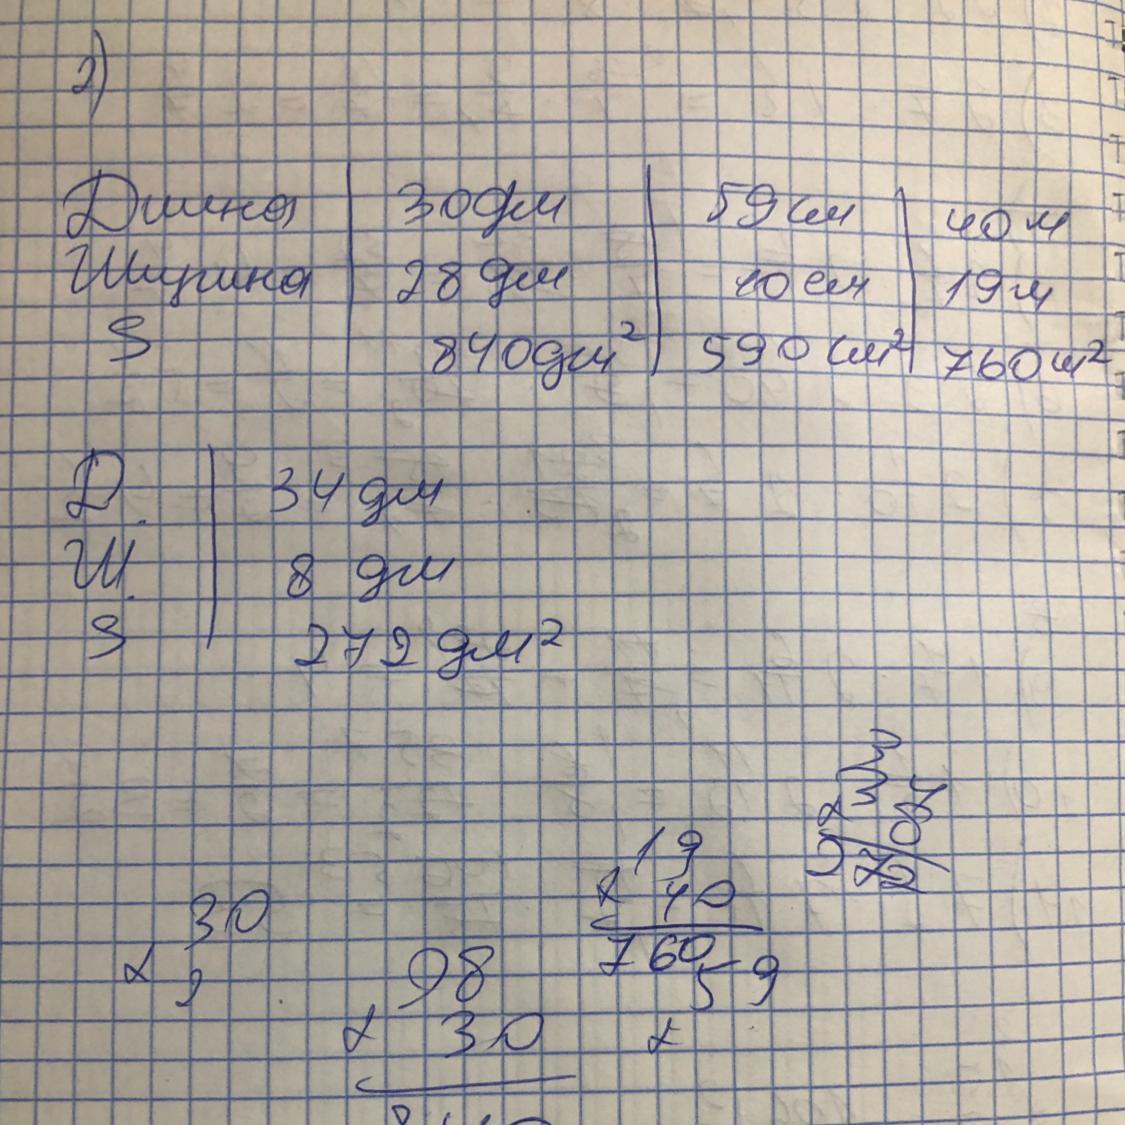 2)
Длина 30дм 59см 40м
Ширина 28дм 10см 19м
S 840дм² 590см² 760м²
Д. 34 дм
Ш. 8 дм
S 272 дм²
19
x 40
760
30
x 2
98
x 30
59
x
34
x 8
272